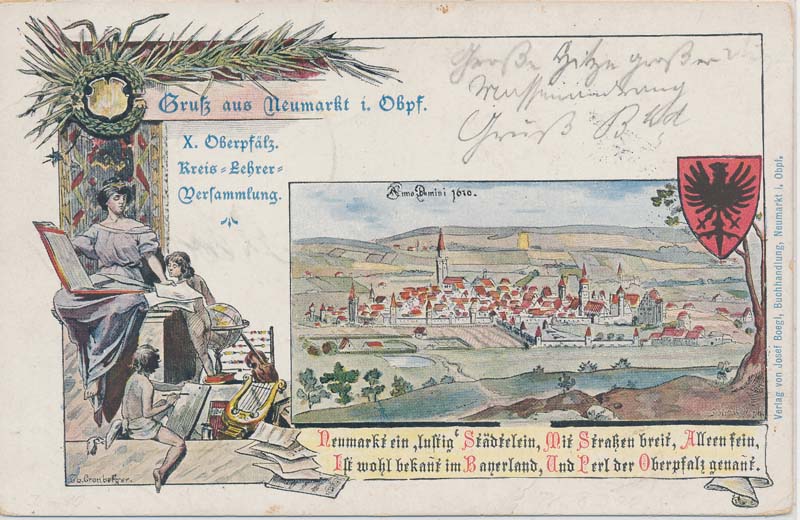 Gruß aus Neumarkt i. Obpf.
X. Oberpfälz.
Kreis-Lehrer-
Versammlung.
Große Hitze großer
Gruß
Anno Domini 1610.
Neumarkt ein „lustig“ Städtelein, Mit Straßen breit, Alleen fein,
Ist wohl bekan̄t im Bayerland, Und Perl der Oberpfalz genan̄t.
Verlag von Josef Boegl, Buchhandlung, Neumarkt i. Obpf.